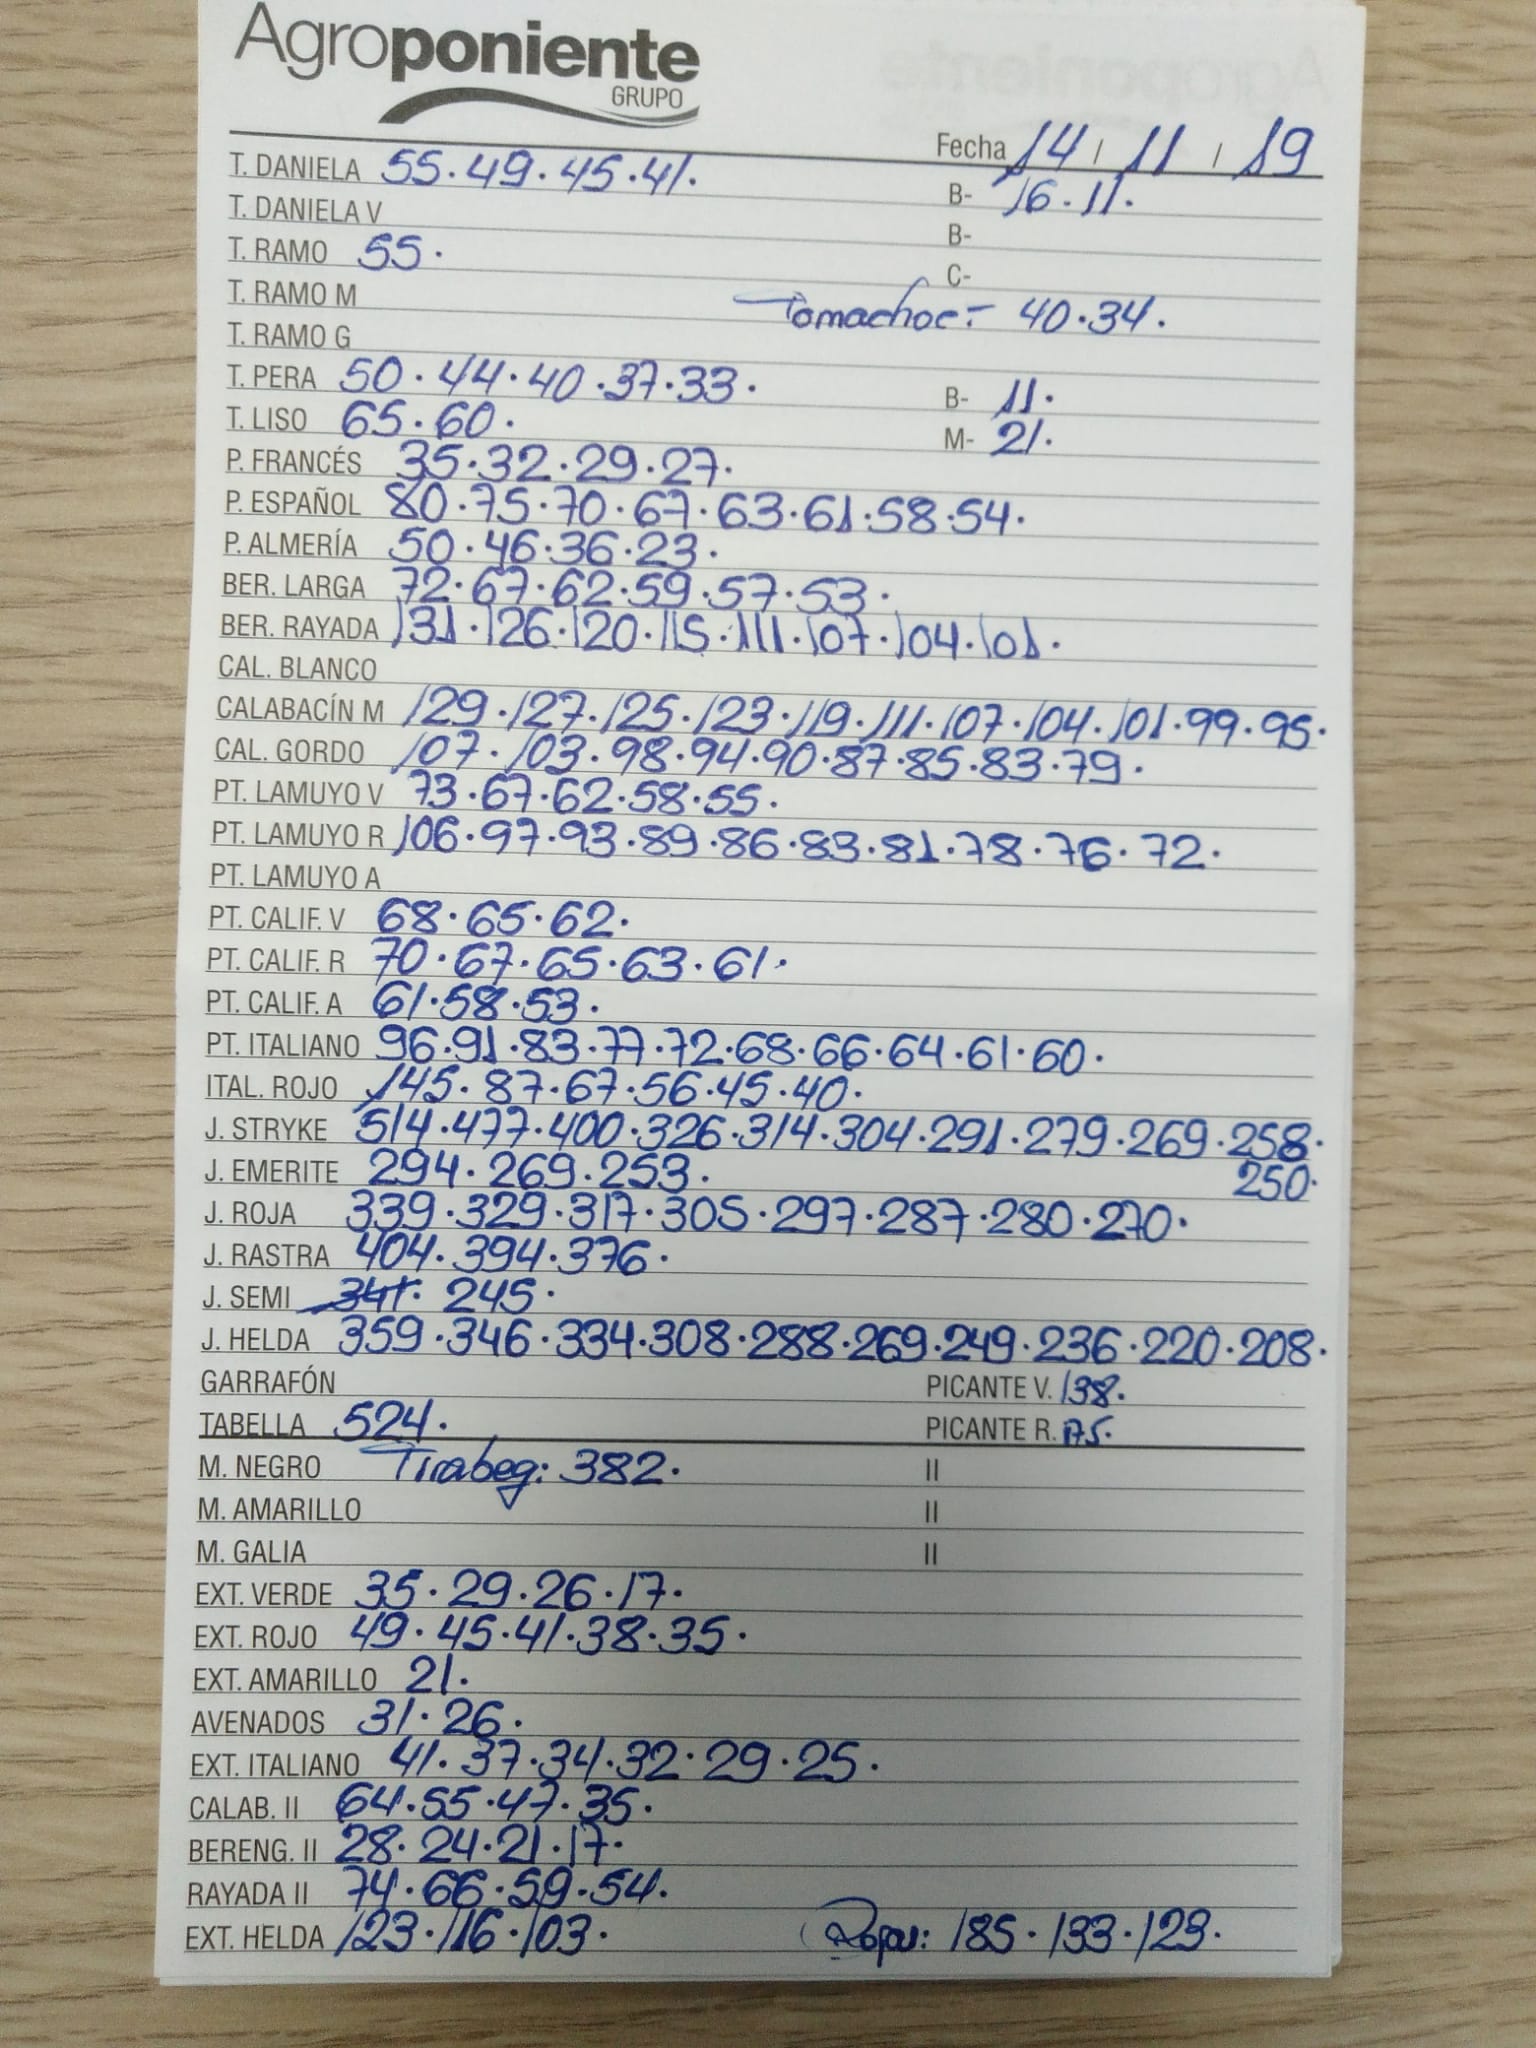 Agroponiente
GRUPO
Fecha 14 / 11 / 19
T. DANIELA 55.49.45.41. B- 16.11.
T. DANIELA V B-
T. RAMO 55. C-
T. RAMO M Tomachoc.- 40.34.
T. RAMO G
T. PERA 50.44.40.37.33. B- 11.
T. LISO 65.60. M- 21.
P. FRANCÉS 35.32.29.27.
P. ESPAÑOL 80.75.70.67.63.61.58.54.
P. ALMERÍA 50.46.36.23.
BER. LARGA 72.67.62.59.57.53.
BER. RAYADA 131.126.120.115.111.107.104.101.
CAL. BLANCO
CALABACÍN M 129.127.125.123.119.111.107.104.101.99.95.
CAL. GORDO 107.103.98.94.90.87.85.83.79.
PT. LAMUYO V 73.67.62.58.55.
PT. LAMUYO R 106.97.93.89.86.83.81.78.76.72.
PT. LAMUYO A
PT. CALIF. V 68.65.62.
PT. CALIF. R 70.67.65.63.61.
PT. CALIF. A 61.58.53.
PT. ITALIANO 96.91.83.77.72.68.66.64.61.60.
ITAL. ROJO 145.87.67.56.45.40.
J. STRYKE 514.477.400.326.314.304.291.279.269.258.
250.
J. EMERITE 294.269.253.
J. ROJA 339.329.317.305.297.287.280.270.
J. RASTRA 404.394.376.
J. SEMI 245.
J. HELDA 359.346.334.308.288.269.249.236.220.208.
GARRAFÓN PICANTE V. 138.
TABELLA 524. PICANTE R. 175.
M. NEGRO Tirabeq: 382. II
M. AMARILLO II
M. GALIA II
EXT. VERDE 35.29.26.17.
EXT. ROJO 49.45.41.38.35.
EXT. AMARILLO 21.
AVENADOS 31.26.
EXT. ITALIANO 41.37.34.32.29.25.
CALAB. II 64.55.47.35.
BERENG. II 28.24.21.17.
RAYADA II 74.66.59.54.
EXT. HELDA 123.116.103. 185.133.123.